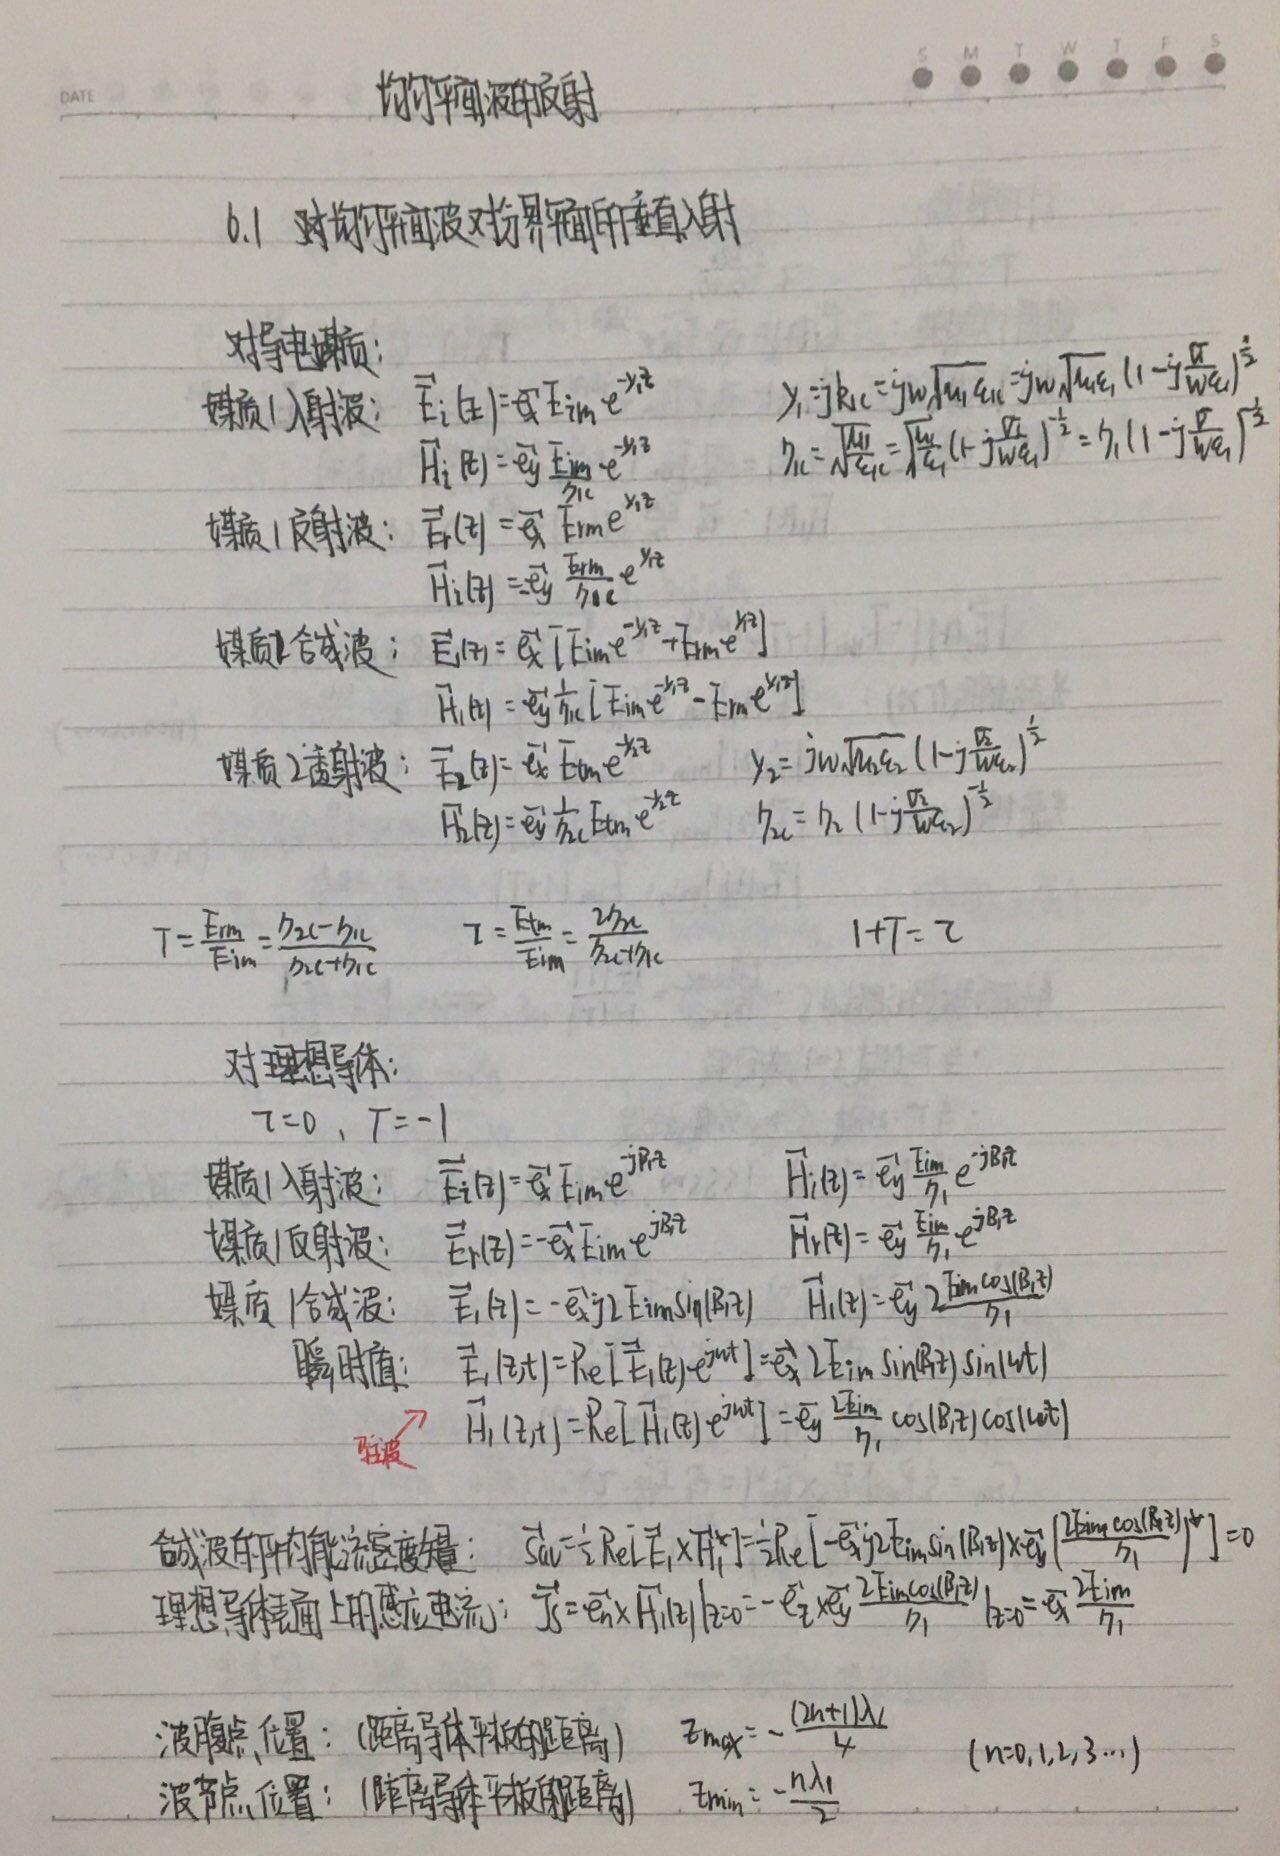 DATE
S M T W T F S
均匀平面波的反射
6.1 对均匀平面波对分界平面的垂直入射
对导电媒质:
媒质1入射波: E⃗i(z)=e⃗x Eim e^{-γ1z} γ1=jk1c=jω√(μ1ε1c)=jω√(μ1ε1)(1-j σ1/(ωε1))^{1/2}
H⃗i(z)=e⃗y (Eim/η1c) e^{-γ1z} η1c=√(μ1/ε1c)=√(μ1/ε1)(1-j σ1/(ωε1))^{-1/2}=η1(1-j σ1/(ωε1))^{-1/2}
媒质1反射波: E⃗r(z)=e⃗x Erm e^{γ1z}
H⃗i(z)=-e⃗y (Erm/η1c) e^{γ1z}
媒质1合成波: E⃗1(z)=e⃗x[Eim e^{-γ1z}+Erm e^{γ1z}]
H⃗1(z)=e⃗y (1/η1c)[Eim e^{-γ1z}-Erm e^{γ1z}]
媒质2透射波: E⃗2(z)=e⃗x Etm e^{-γ2z} γ2=jω√(μ2ε2)(1-j σ2/(ωε2))^{1/2}
H⃗2(z)=e⃗y (1/η2c) Etm e^{-γ2z} η2c=η2(1-j σ2/(ωε2))^{-1/2}
Γ=Erm/Eim=(η2c-η1c)/(η2c+η1c) τ=Etm/Eim=2η2c/(η2c+η1c) 1+Γ=τ
对理想导体:
τ=0, Γ=-1
媒质1入射波: E⃗i(z)=e⃗x Eim e^{-jβ1z} H⃗i(z)=e⃗y (Eim/η1) e^{-jβ1z}
媒质1反射波: E⃗r(z)=-e⃗x Eim e^{jβ1z} H⃗r(z)=e⃗y (Eim/η1) e^{jβ1z}
媒质1合成波: E⃗1(z)=-e⃗x j2Eim sin(β1z) H⃗1(z)=e⃗y 2Eim cos(β1z)/η1
瞬时值: E⃗1(z,t)=Re[E⃗1(z)e^{jωt}]=e⃗x 2Eim sin(β1z)sin(ωt)
H⃗1(z,t)=Re[H⃗1(z)e^{jωt}]=e⃗y (2Eim/η1) cos(β1z)cos(ωt)
驻波
合成波的平均能流密度矢量: S⃗av=½Re[E⃗1×H⃗1*]=½Re[-e⃗x j2Eim sin(β1z)×e⃗y(2Eim cos(β1z)/η1)*]=0
理想导体表面上的感应电流: J⃗s=e⃗n×H⃗1(z)|z=0=-e⃗z×e⃗y 2Eim cos(β1z)/η1|z=0=e⃗x 2Eim/η1
波腹点位置: (距离导体平板的距离) zmax=-(2n+1)λ1/4
(n=0,1,2,3…)
波节点位置: (距离导体平板的距离) zmin=-nλ1/2